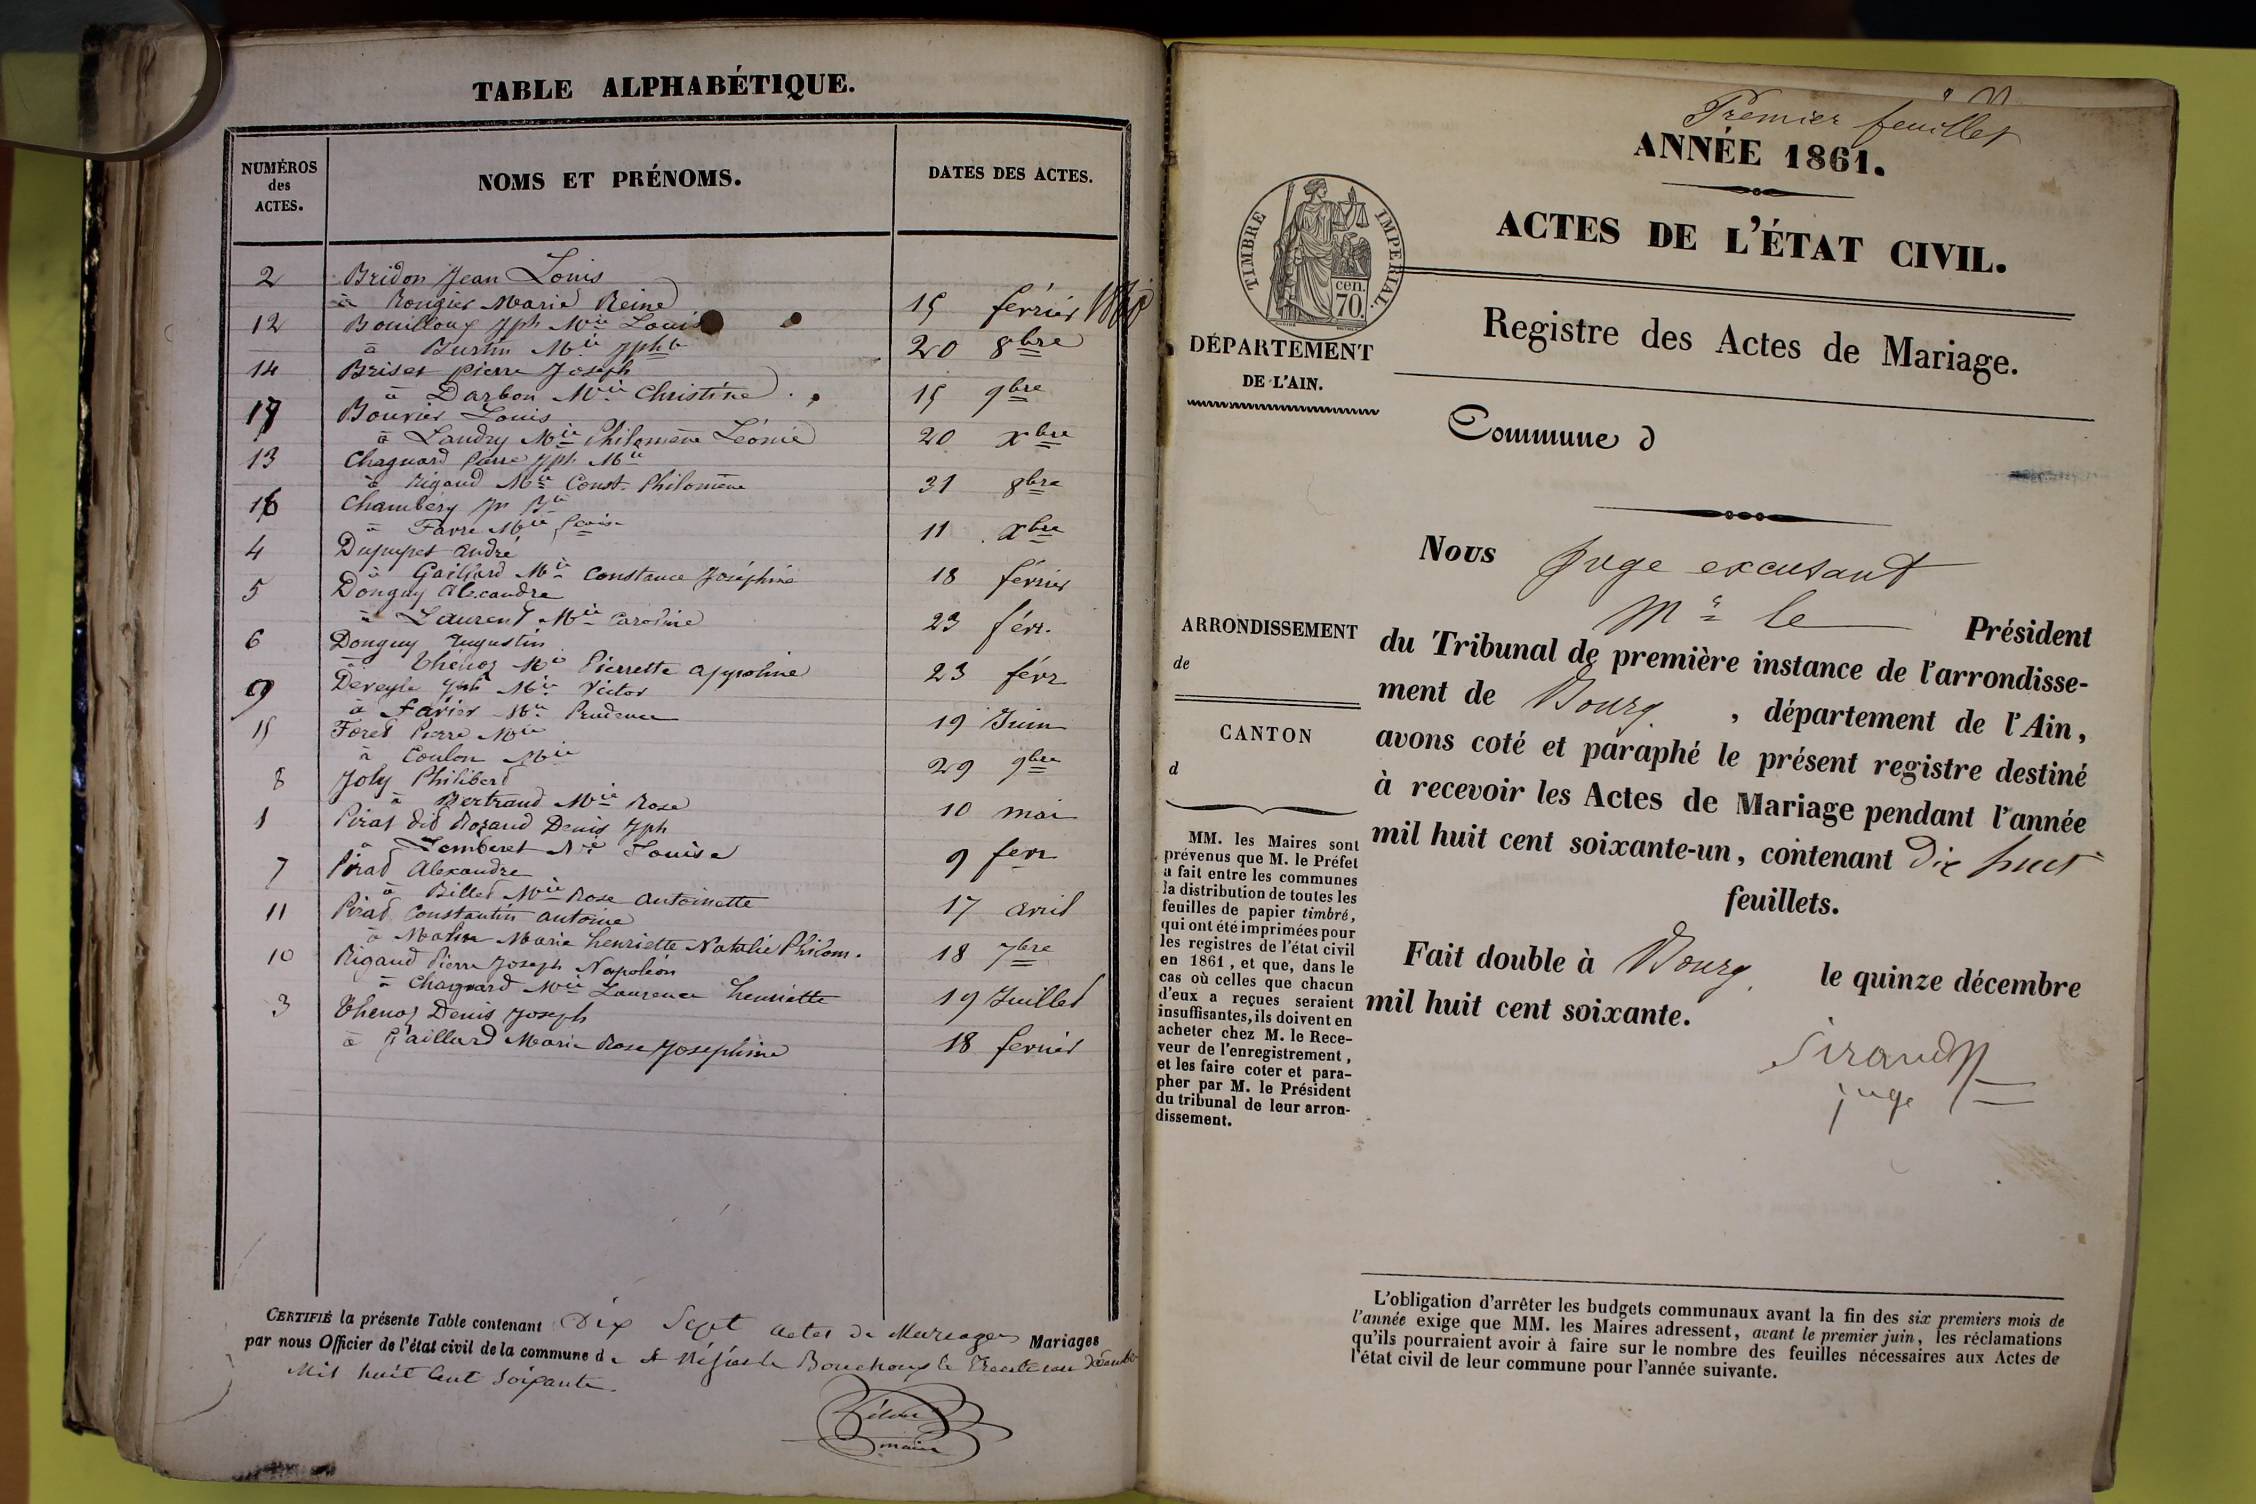 TABLE ALPHABÉTIQUE.
NUMÉROS
des
ACTES.
NOMS ET PRÉNOMS.
DATES DES ACTES.
2 Bridon Jean Louis
à Rougier Marie Reine 15 février 1860
12 Bouilloux Jph Mie Louis
à Burtin Mie Jphte 20 8bre
14 Briset Pierre Joseph
à Darbon Mie Christine 15 9bre
17 Bouvier Louis
à Landry Mie Philomène Léonie 20 xbre
13 Chagnard Pierre Jph Mie
à Rigaud Mie Const. Philomène 31 8bre
16 Chambéry Jn Bte
à Favre Mie Louise 11 xbre
4 Dupupet André
à Gaillard Mie Constance Joséphine 18 février
5 Donguy Alexandre
à Laurent Mie Caroline 23 févr.
6 Donguy Augustin
à Thénoz Mie Pierrette Appoline 23 févr
9 Deveyle Jph Mie Victor
à Favier Mie Prudence 19 Juin
15 Foret Pierre Mie
à Coulon Mie 29 9bre
8 Joly Philibert
à Bertrand Mie Rose 10 mai
1 Pirat dit Rozand Denis Jph
à Lomberet Mie Louise 9 fevr
7 Pirat Alexandre
à Billet Mie Rose Antoinette 17 avril
11 Pirat Constantin Antoine
à Marie Henriette Natalie Philom. 18 7bre
10 Rigaud Pierre Joseph Napoléon
à Chagnard Mie Laurence henriette 19 Juillet
3 Thenoz Denis Joseph
à Gaillard Marie Rose Josephine 18 fevrier
CERTIFIÉ la présente Table contenant Dix Sept actes de Mariages Mariages
par nous Officier de l'état civil de la commune de St Nizier le Bouchoux le Trente un Décembre
Mil huit Cent Soixante.
maire
Premier feuillet
ANNÉE 1861.
ACTES DE L'ÉTAT CIVIL.
TIMBRE IMPERIAL.
cen.
70.
Registre des Actes de Mariage.
DÉPARTEMENT
DE L'AIN.
Commune d
Nous Juge excusant
Mr le Président
ARRONDISSEMENT
de
CANTON
d
du Tribunal de première instance de l'arrondisse-
ment de Bourg, département de l'Ain,
avons coté et paraphé le présent registre destiné
à recevoir les Actes de Mariage pendant l'année
mil huit cent soixante-un, contenant dix huit
feuillets.
Fait double à Bourg, le quinze décembre
mil huit cent soixante.
Sirand
juge
MM. les Maires sont
prévenus que M. le Préfet
a fait entre les communes
la distribution de toutes les
feuilles de papier timbré,
qui ont été imprimées pour
les registres de l'état civil
en 1861, et que, dans le
cas où celles que chacun
d'eux a reçues seraient
insuffisantes, ils doivent en
acheter chez M. le Rece-
veur de l'enregistrement,
et les faire coter et para-
pher par M. le Président
du tribunal de leur arron-
dissement.
L'obligation d'arrêter les budgets communaux avant la fin des six premiers mois de
l'année exige que MM. les Maires adressent, avant le premier juin, les réclamations
qu'ils pourraient avoir à faire sur le nombre des feuilles nécessaires aux Actes de
l'état civil de leur commune pour l'année suivante.